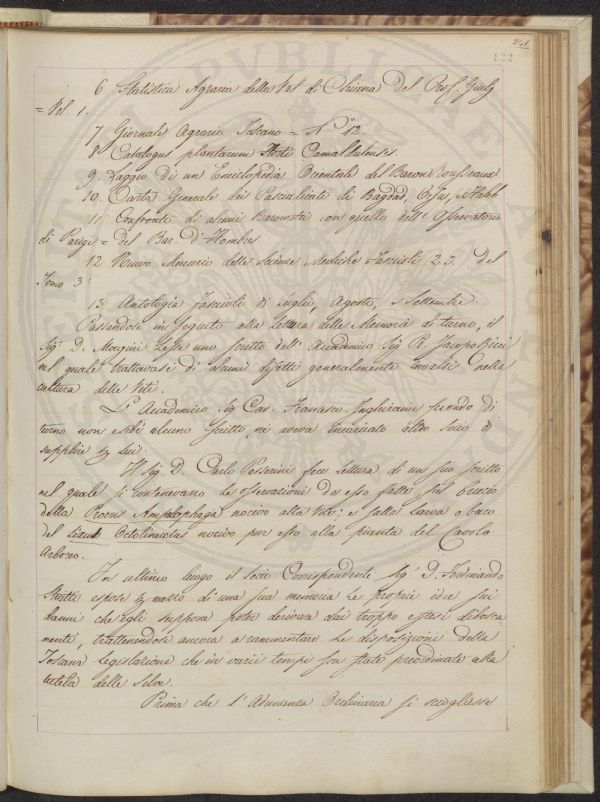 241
122
6 Statistica Agraria della Val di Chiana del Prof. Giulj
= Vol. 1.
7 Giornale Agrario Toscano = N.° 12.
8 Catalogus plantarum Horti Camaldulensis
9. Saggio di un Enciclopedia Orientale del Barone
10. Carta Generale dei Pascialicati di Bagdad, Orfa, e Haleb
11 Confronto di alcuni Barometri con quello dell' Osservatorio
di Parigi = del Bar. d'Hombres.
12 Nuovo Mercurio delle Scienze Mediche Fascicoli 2.3. del
Tomo 3.°
13 Antologia Fascicoli di Luglio, Agosto, e Settembre
Passandosi in seguito alla lettura delle Memorie di turno, il
Sig. D. Magini lesse uno scritto dell' Accademico Sig. P. Jacopo Ricci
nel quale trattavasi di alcuni difetti generalmente invalsi nella
cultura delle Viti.
L' Accademico Sig. Cav. Francesco Inghirami secondo di
turno non esibì alcuno scritto, nè aveva incaricato altro Socio di
supplire per lui.
Il Sig. D. Carlo Passerini fece lettura di un suo scritto
nel quale si contenevano le osservazioni da esso fatte sul bruco
della Procris Ampelophaga nocivo alla Vite; e sulla larva o baco
del Lixus Octolineatus nocivo pur esso alla pianta del Cavolo
Arboreo.
In ultimo luogo il Socio Corrispondente Sig. D. Ferdinando
espose per mezzo di una sua memoria le proprie idee sui
danni che egli suppose poter derivare dai troppo estesi disbosca
menti, trattenendosi ancora a rammentare le disposizioni della
Toscana Legislazione che in varii tempi son state preordinate alla
tutela delle Selve.
Prima che l' Adunanza Ordinaria si sciogliesse